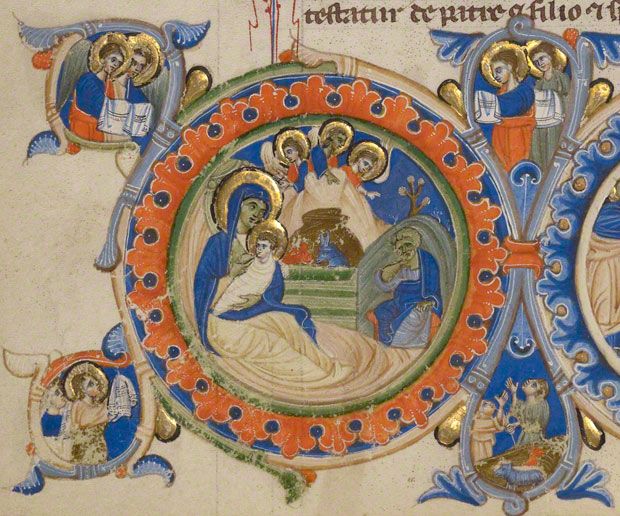 testatur de patre ⁊ filio ⁊